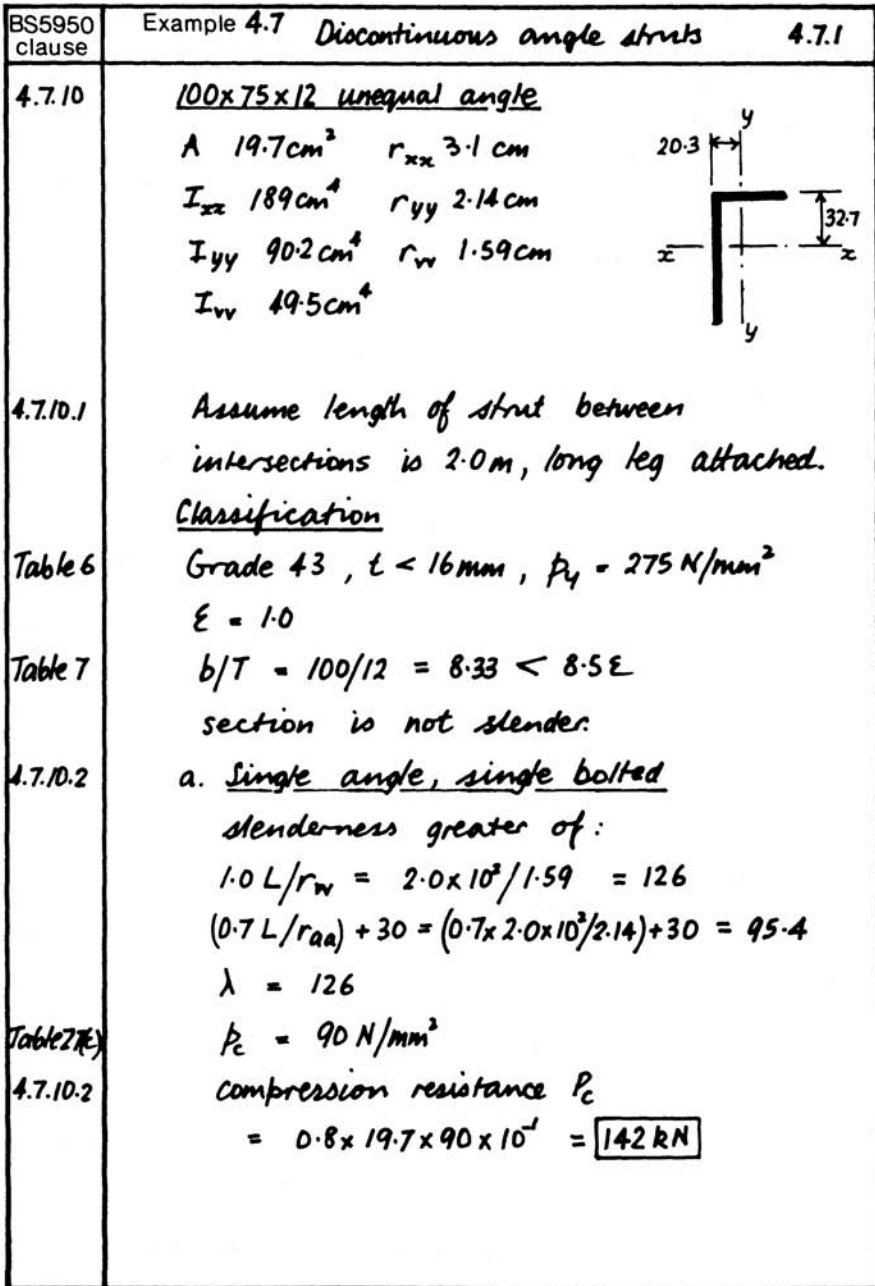 BS5950 clause
Example 4.7 Discontinuous angle struts 4.7.1
4.7.10 100x75x12 unequal angle
A 19.7cm² r_xx 3.1 cm
I_xx 189cm⁴ r_yy 2.14 cm
I_yy 90.2 cm⁴ r_vv 1.59cm
I_vv 49.5cm⁴
y
20.3
32.7
x x
y
4.7.10.1 Assume length of strut between
intersections is 2.0m, long leg attached.
Classification
Table 6 Grade 43, t < 16mm, p_y = 275 N/mm²
ε = 1.0
Table 7 b/T = 100/12 = 8.33 < 8.5ε
section is not slender.
4.7.10.2 a. Single angle, single bolted
slenderness greater of:
1.0 L/r_vv = 2.0x10²/1.59 = 126
(0.7 L/r_aa) + 30 = (0.7x 2.0x10²/2.14)+30 = 95.4
λ = 126
Table27(c) p_c = 90 N/mm²
4.7.10.2 compression resistance P_c
= 0.8x 19.7x 90 x 10⁻¹ = 142 kN